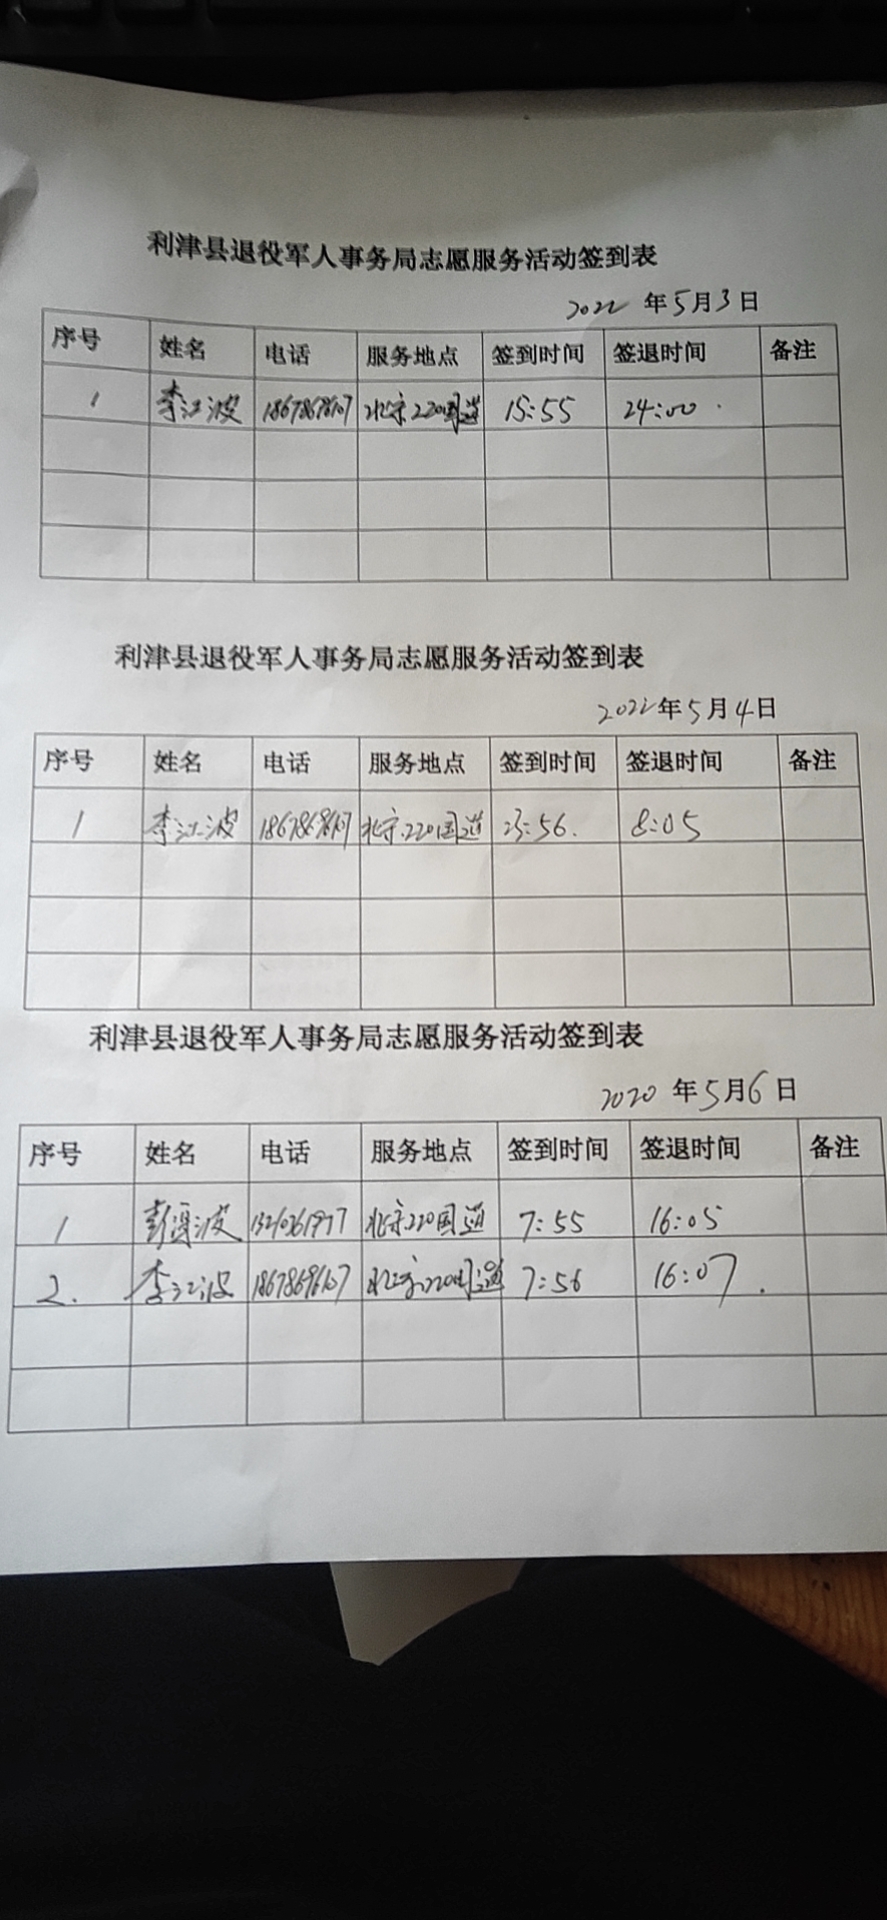 利津县退役军人事务局志愿服务活动签到表
2022 年 5 月 3 日
序号 姓名 电话 服务地点 签到时间 签退时间 备注
1 李江波 北宋220国道 15:55 24:00
利津县退役军人事务局志愿服务活动签到表
2022 年 5 月 4 日
序号 姓名 电话 服务地点 签到时间 签退时间 备注
1 李江波 北宋220国道 23:56 8:05
利津县退役军人事务局志愿服务活动签到表
2020 年 5 月 6 日
序号 姓名 电话 服务地点 签到时间 签退时间 备注
1 北宋220国道 7:55 16:05
2. 李江波 18678696107 北宋220国道 7:56 16:07